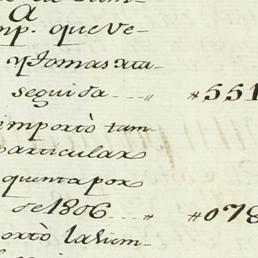 A
mp. que Ve-
y Tomas xta-
seguida ... " #551
importò tam-
particular
quenta por
de 1806 ... " #078